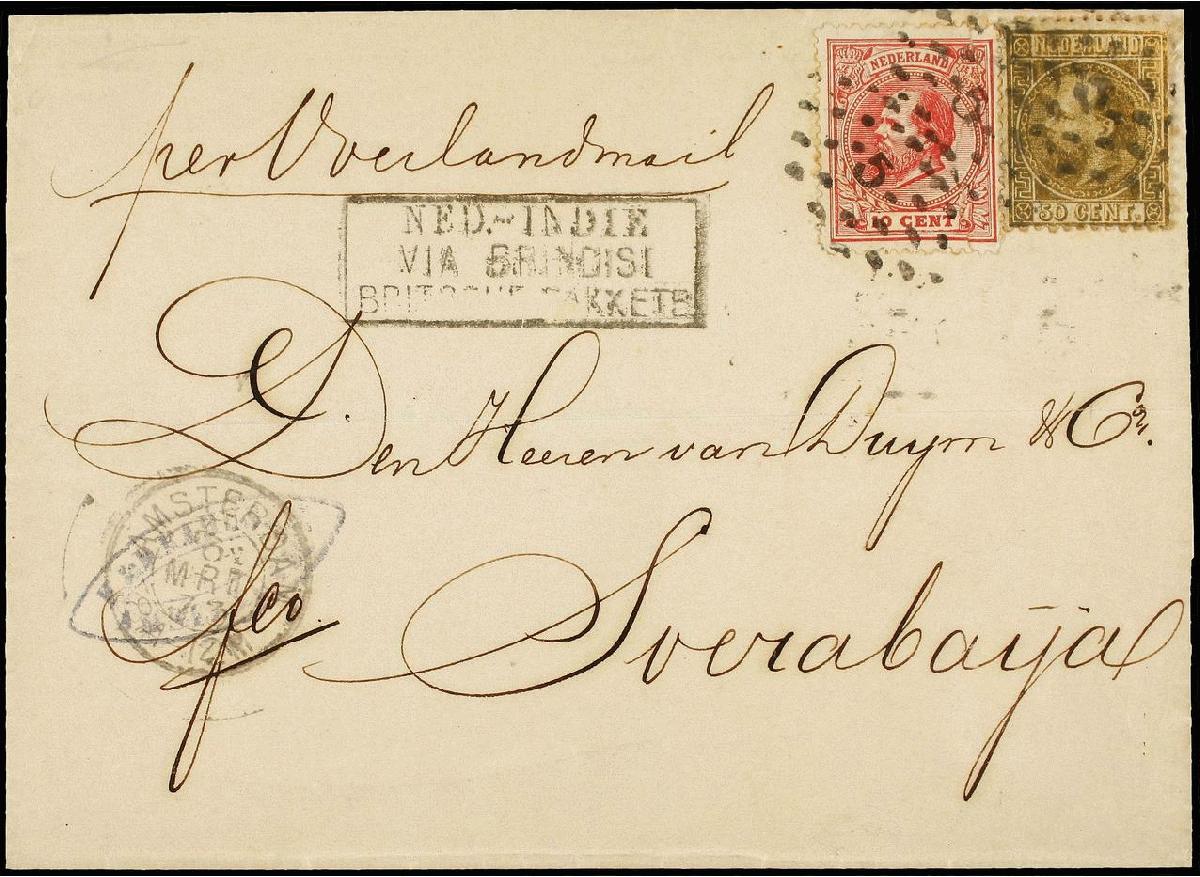 per Overlandmail
NEDERLAND
10 CENT
NEDERLAND
50 CENT.
5
5
NED.-INDIE
VIA BRINDISI
BRITSCHE PAKKETB
Den Heeren van Duym & Co.
AMSTERDAM
fco.
Soerabaija